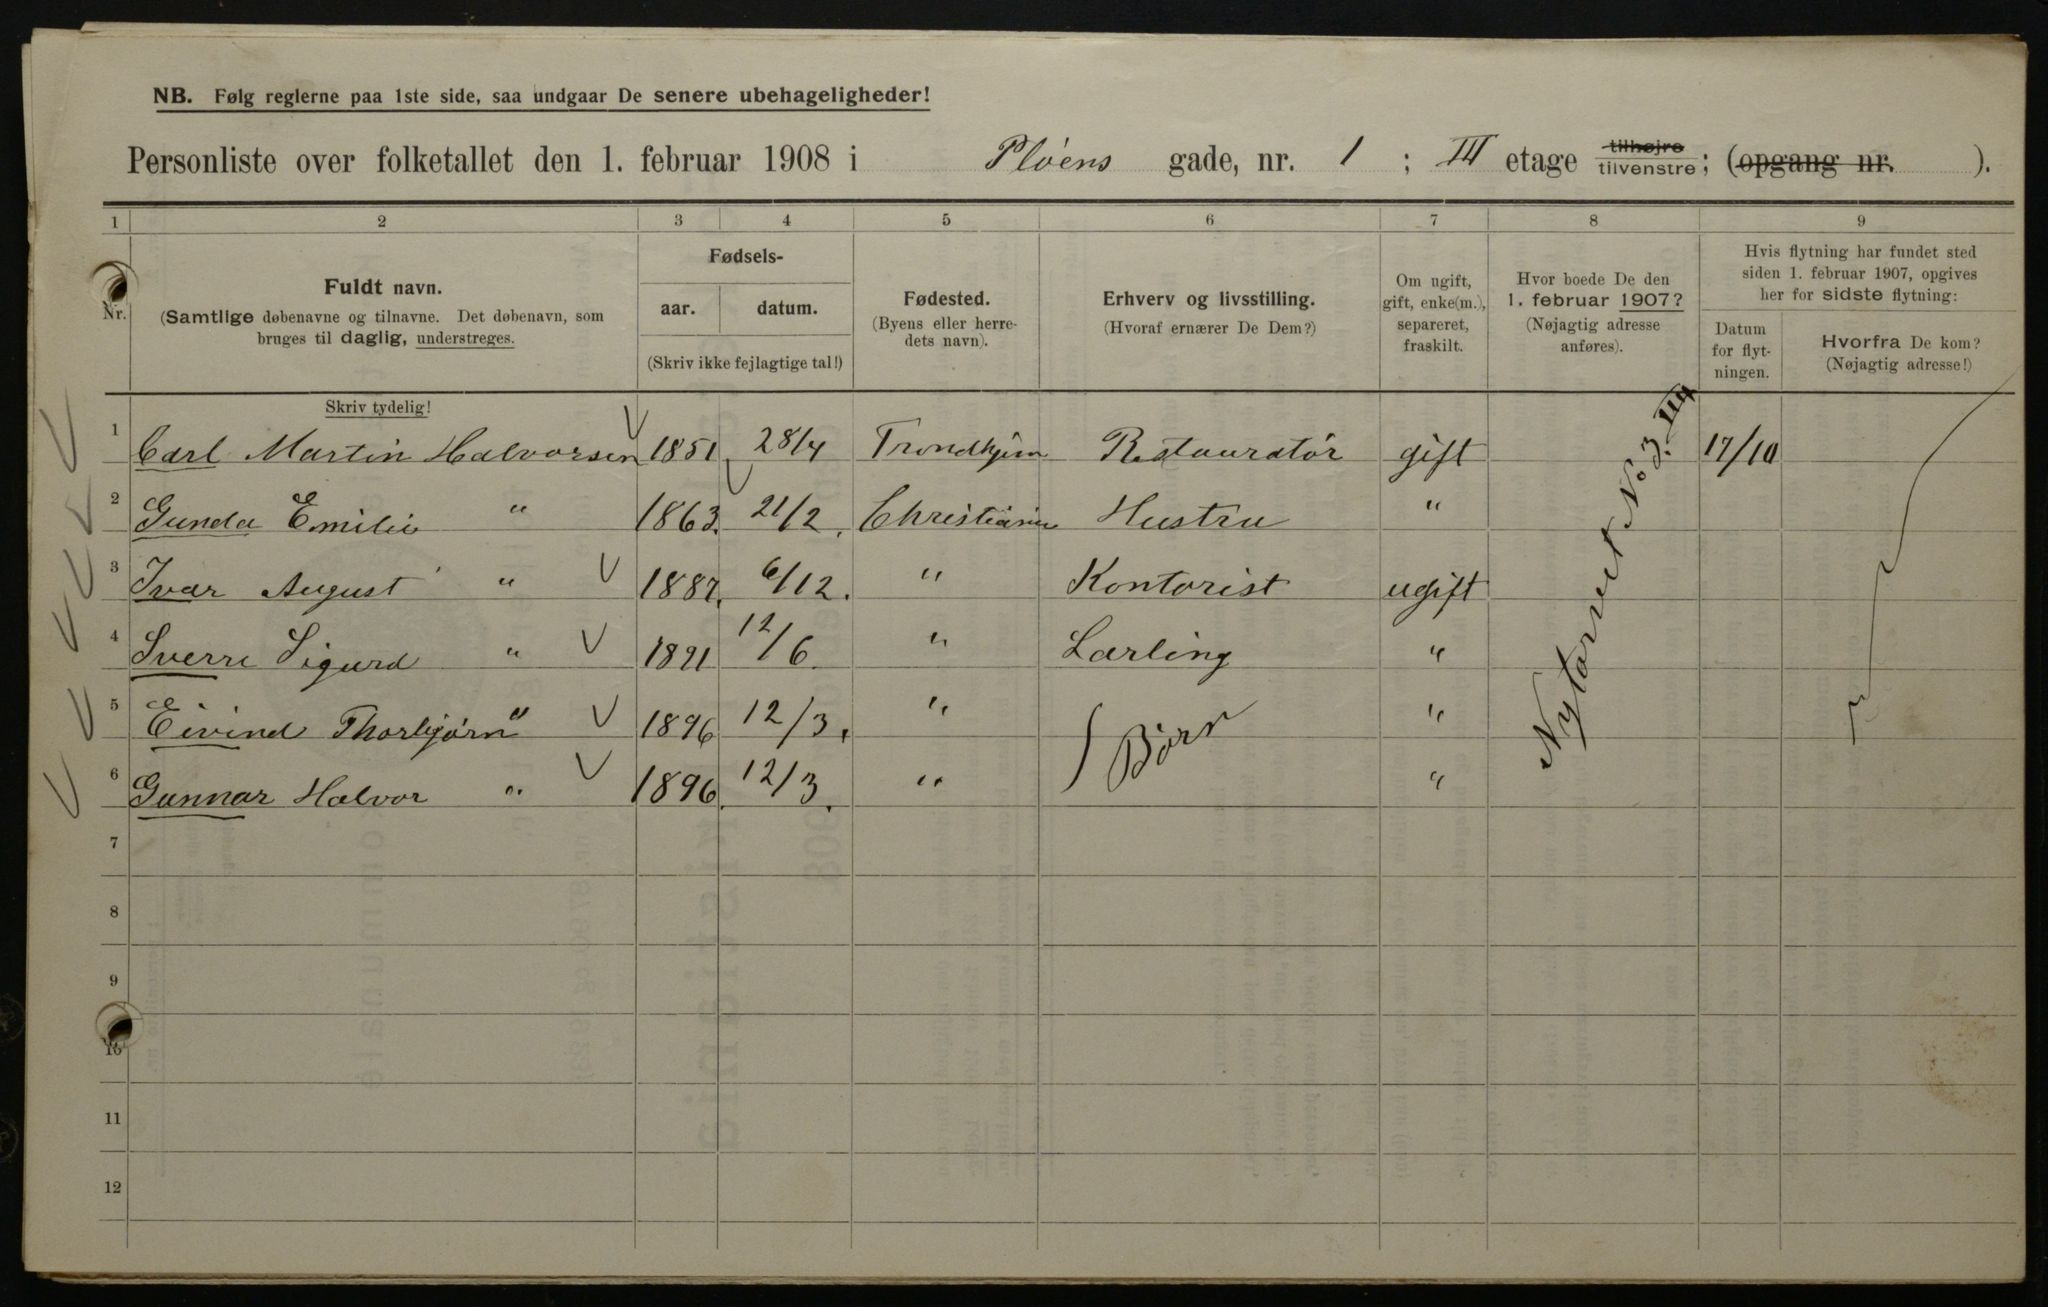 NB. Følg reglerne paa 1ste side, saa undgaar De senere ubehageligheder!
Personliste over folketallet den 1. februar 1908 i Pløens gade, nr. 1 ; III etage tilhøjre tilvenstre; (opgang nr. ).
1 2 3 4 5 6 7 8 9
Nr.
Fuldt navn.
(Samtlige døbenavne og tilnavne. Det døbenavn, som
bruges til daglig, understreges.
Skriv tydelig!
Fødsels-
aar. datum.
(Skriv ikke fejlagtige tal!)
Fødested.
(Byens eller herre-
dets navn).
Erhverv og livsstilling.
(Hvoraf ernærer De Dem?)
Om ugift,
gift, enke(m.),
separeret,
fraskilt.
Hvor boede De den
1. februar 1907?
(Nøjagtig adresse
anføres).
Hvis flytning har fundet sted
siden 1. februar 1907, opgives
her for sidste flytning:
Datum
for flyt-
ningen.
Hvorfra De kom?
(Nøjagtig adresse!)
1 Carl Martin Halvorsen 1851 28/4 Trondhjem Restauratør gift 17/10
2 Gunda Emilie " 1863. 21/2. Christiania Hustru "
3 Ivar August " 1887. 6/12. " Kontorist ugift
4 Sverre Sigurd " 1891 12/6. " Lærling "
5 Eivind Thorbjørn " 1896 12/3. " Børn "
6 Gunnar Halvor " 1896. 12/3. " "
Nytorvet No 3 III
7
8
9
10
11
12